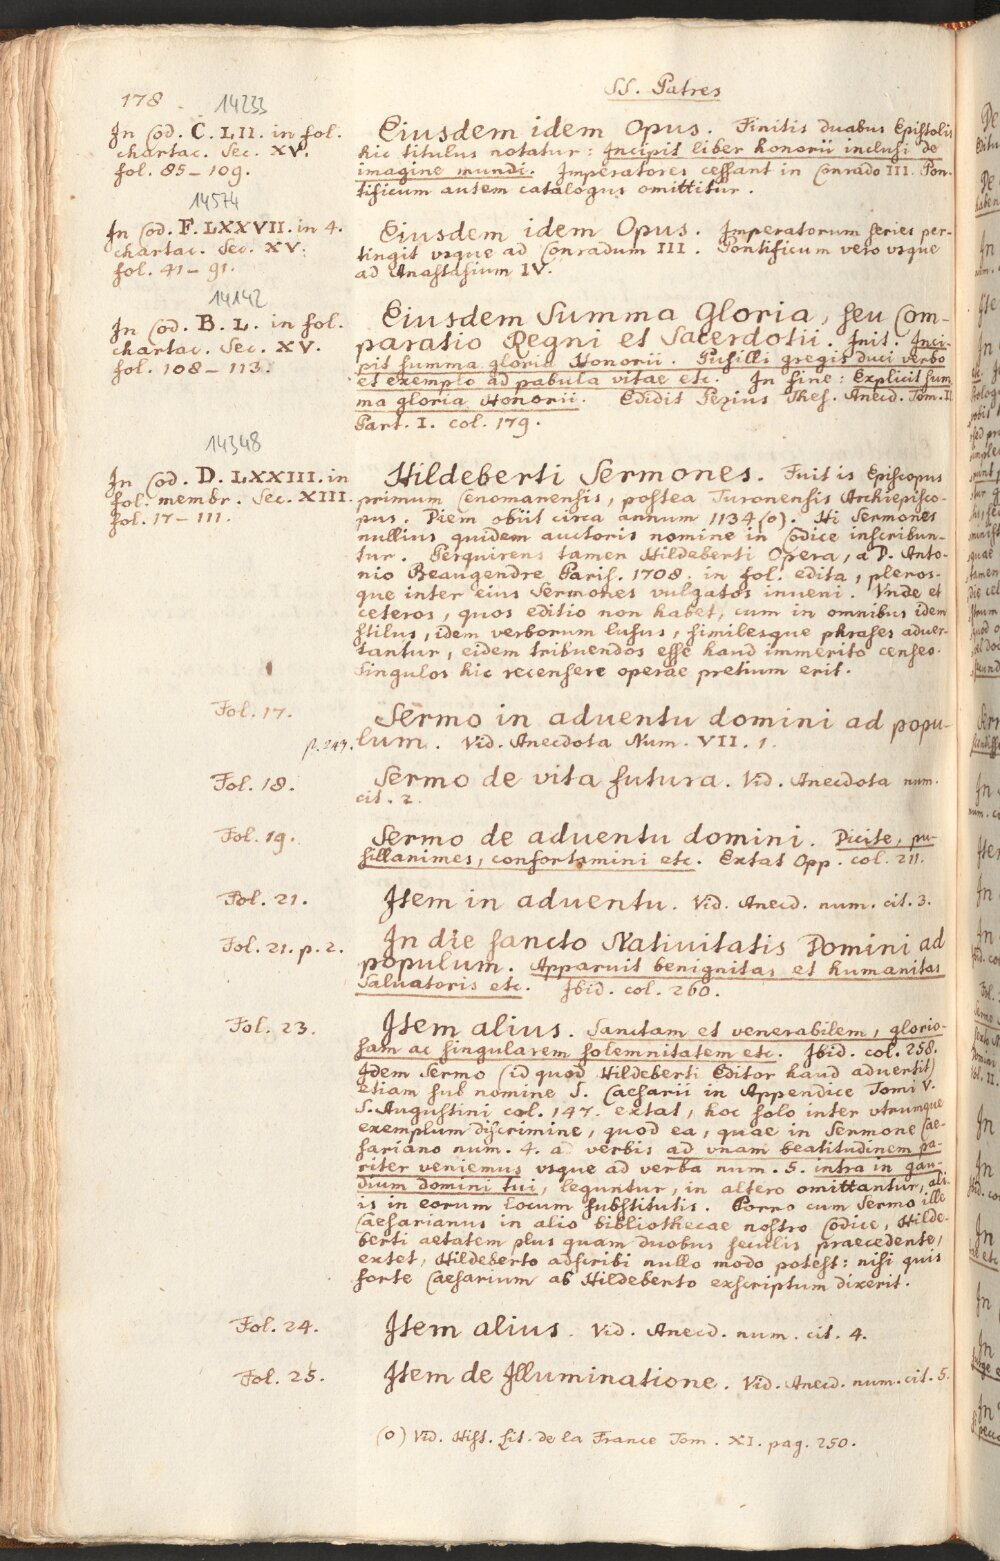 178
SS. Patres
14233
In Cod. C. LII. in fol.
chartac. Sec. XV.
fol. 85 – 109.
Eiusdem idem Opus. Finitis duabus Epistolis
hic titulus notatur: Incipit liber honorii inclusi de
imagine mundi. Imperatores cessant in Conrado III. Pon-
tificum autem catalogus omittitur.
14574
In Cod. F. LXXVII. in 4.
chartac. Sec. XV.
fol. 41 – 91.
Eiusdem idem Opus. Imperatorum series per-
tingit vsque ad Conradum III. Pontificum vero vsque
ad Anastasium IV.
14142
In Cod. B. L. in fol.
chartac. Sec. XV.
fol. 108 – 113.
Eiusdem Summa Gloria, seu Com-
paratio Regni et Sacerdotii. Init. Inci-
pit summa gloria Honorii. Pusilli gregis duci verbo
et exemplo ad pabula vitae etc. In fine: Explicit sum
ma gloria Honorii. Edidit Pezius Thes. Anecd. Tom. II
Part. I. col. 179.
14348
In Cod. D. LXXIII. in
fol. membr. Sec. XIII.
fol. 17 – 111.
Hildeberti Sermones. Fuit is Episcopus
primum Cenomanensis, postea Turonensis Archiepisco-
pus. Diem obiit circa annum 1134 (o). Hi Sermones
nullius quidem auctoris nomine in Codice inscribun-
tur. Perquirens tamen Hildeberti Opera, a D. Anto-
nio Beaugendre Paris. 1708. in fol. edita, pleros-
que inter eius Sermones vulgatos inueni. Vnde et
ceteros, quos editio non habet, cum in omnibus idem
stilus, idem verborum lusus, similesque phrases aduer-
tantur, eidem tribuendos esse haud immerito censeo.
Singulos hic recensere operae pretium erit.
Fol. 17.
Sermo in aduentu domini ad popu-
p. 243. lum. Vid. Anecdota Num. VII. 1.
Fol. 18.
Sermo de vita futura. Vid. Anecdota num.
cit. 2.
Fol. 19.
Sermo de aduentu domini. Dicite, pu-
sillanimes, confortamini etc. Extat Opp. col. 211.
Fol. 21.
Item in aduentu. Vid. Anecd. num. cit. 3.
Fol. 21. p. 2.
In die sancto Natiuitatis Domini ad
populum. Apparuit benignitas et humanitas
Saluatoris etc. Ibid. col. 260.
Fol. 23.
Item alius. Sanctam et venerabilem, glorio-
sam ac singularem solemnitatem etc. Ibid. col. 258.
Idem Sermo (id quod Hildeberti Editor haud aduertit)
etiam sub nomine S. Caesarii in Appendice Tomi V.
S. Augustini col. 147. extat, hoc solo inter vtrumque
exemplum discrimine, quod ea, quae in Sermone Cae-
sariano num. 4. a verbis ad vnam beatitudinem pa-
riter veniemus vsque ad verba num. 5. intra in gau-
dium domini tui, leguntur, in altero omittantur, ali-
is in eorum locum substitutis. Porro cum Sermo ille
Caesarianus in alio bibliothecae nostro Codice, Hilde-
berti aetatem plus quam duobus seculis praecedente,
extet, Hildeberto adscribi nullo modo potest: nisi quis
forte Caesarium ab Hildeberto exscriptum dixerit.
Fol. 24.
Item alius. Vid. Anecd. num. cit. 4.
Fol. 25.
Item de Illuminatione. Vid. Anecd. num. cit. 5.
(o) Vid. Hist. Lit. de la France Tom. XI. pag. 250.